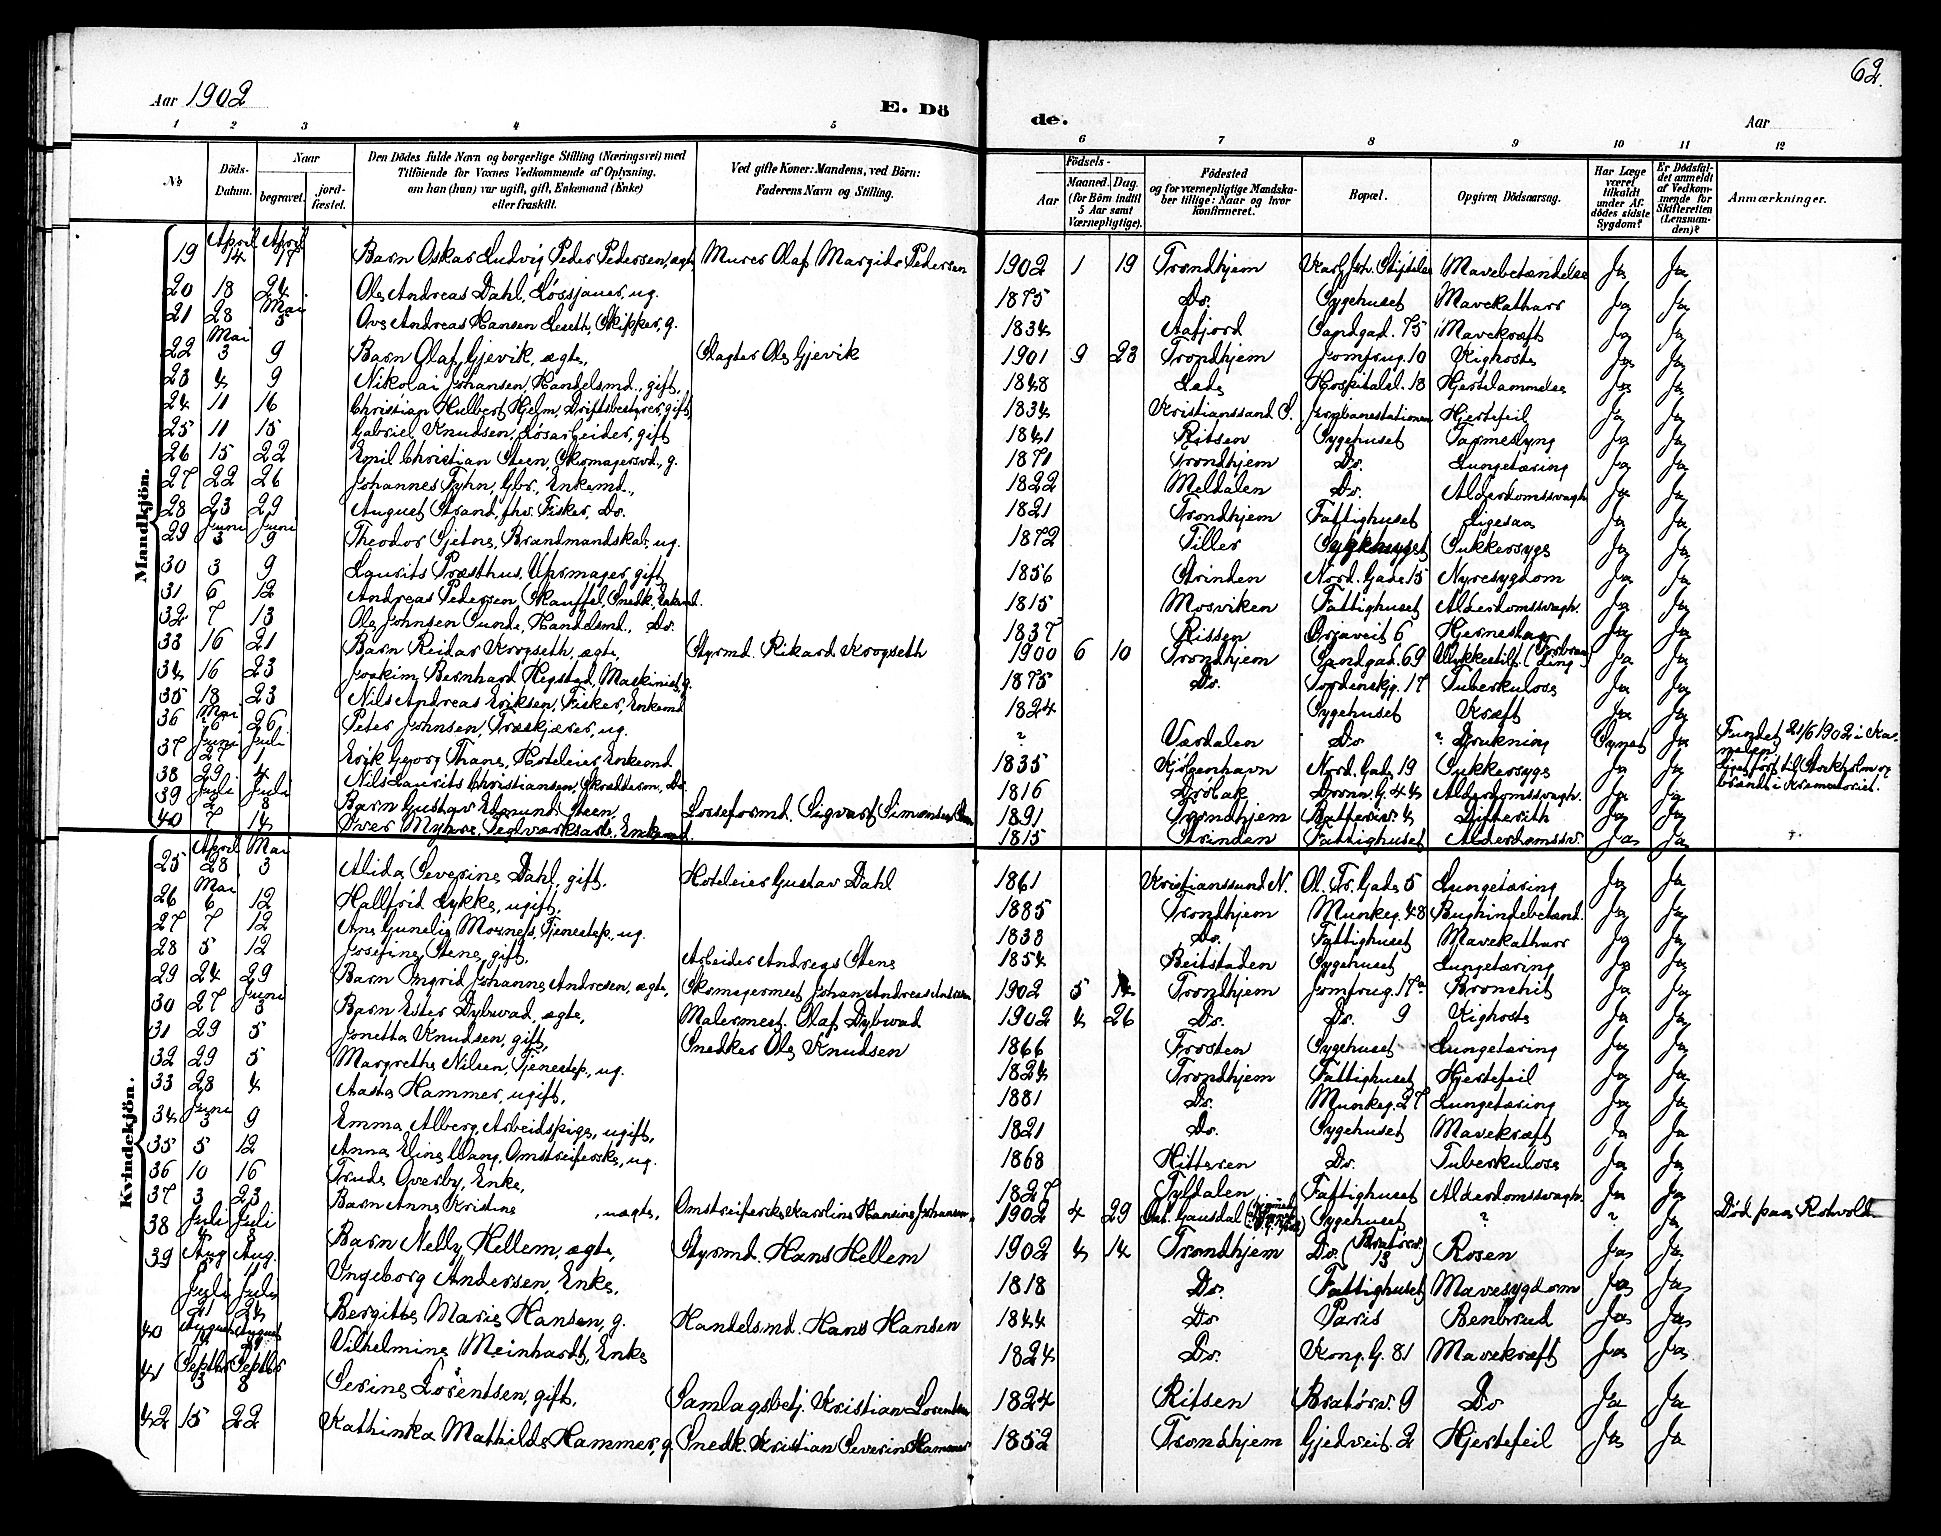 62.
Aar 1902
E. Dö
de.
Aar
1 2 3 4 5 6 7 8 9 10 11 12
№
Döds-Datum.
Naar
begravet.
jord-fæstet.
Den Dödes fulde Navn og borgerlige Stilling (Næringsvei) med Tilföiende for Voxnes Vedkommende af Oplysning, om han (hun) var ugift, gift, Enkemand (Enke) eller fraskilt.
Ved gifte Koner: Mandens, ved Börn: Faderens Navn og Stilling.
Födsels-
Aar
Maaned. Dag.
(for Börn indtil 5 Aar samt Værnepligtige).
Födested og for værnepligtige Mandskaber tillige: Naar og hvor konfirmeret.
Bopæl.
Opgiven Dödsaarsag.
Har Læge været tilkaldt under Afdödes sidste Sygdom?
Er Dödsfaldet anmeldt af Vedkommende for Skifteretten (Lensmanden)?
Anmærkninger.
Mandkjön.
19 April 14 April 17 Barn Oskar Ludvig Peder Pedersen, ægte, Murer Olaf Pedersen 1902 1 19 Trondhjem Mavebetændelse Ja Ja
20 18 24 Ole Andreas Dahl, ug. 1875 Do. Sygehuset Mavekatharr Ja Ja
21 28 Mai 3 Ove Andreas Hansen Leseth, Skipper, g. 1834 Aafjord Sandgad. 75 Mavekræft Ja Ja
22 Mai 3 9 Barn Olaf Gjevik, ægte, Slagter Ole Gjevik 1901 9 23 Trondhjem Jomfrug. 10 Kighoste Ja Ja
23 4 9 Nikolai Johansen, Handelsmd., gift, 1848 Lade Hospitalsl. 18 Hjertelammelse Ja Ja
24 11 16 Christian Hulbert Hjelm, Driftsbestyrer, gift, 1834 Kristianssand S. Jernbanestationen Hjertefeil Ja Ja
25 11 15 Gabriel Knudsen, Løsarbeider, gift 1841 Ritsen Sygehuset Tarmeslyng Ja Ja
26 15 22 Emil Christian Steen, Skomagersvd., g. 1871 Trondhjem Do. Lungetæring Ja Ja
27 22 26 Johannes Tyhn, Gbr., Enkemd., 1822 Meldalen Do. Alderdomssvagh. Ja Ja
28 23 29 August Strand, fhv. Fisker, Do. 1821 Trondhjem Fattighuset Ligesaa Ja Ja
29 Juni 3 Juni 9 Theodor Sjetne, Brandmandskab, ug. 1872 Tiller Sygehuset Sukkersyge Ja Ja
30 3 9 Laurits Præsthus, Urmager, gift, 1856 Strinden Nord. Gade 15 Nyresygdom Ja Ja
31 6 12 Andreas Pedersen Skauffel, Snedk., Enkemd. 1815 Mosviken Fattighuset Alderdomssvagh. Ja Ja
32 7 13 Ole Johnsen Sunde, Handelsmd., Do. 1837 Rissen Ørjaveit 6 Hjerneslag Ja Ja
33 16 21 Barn Reidar Krogseth, ægte, Styrmd. Rikard Krogseth 1900 6 10 Trondhjem Sandgad. 69 Ulykkestilf. (Forbrænding) Ja Ja
34 16 23 Joakim Bernhard Hegstad, Maskinist, g. 1875 Do. Tordenskj.g. 17 Tuberkulose Ja Ja
35 18 23 Nils Andreas Eriksen, Fisker, Enkemd 1824 Sygehuset Kræft Ja Ja
36 Mai 6 26 Peter Johnsen, Træskjærer, ug. ? Værdalen Do ? Drukning Synet Ja Fundet 21/6 1902 i Kanalen
37 Juni 27 Juli 1 Erik Georg Thane, Hoteleier, Enkemd 1835 Kjøbenhavn Nord. Gade 19 Sukkersyge Ja Ja Ligen ført til Stockholm og brændt i Krematoriet.
38 29 4 Nils Laurits Christiansen, Skræderm., Do. 1816 Drøbak Dronn. G. 44 Alderdomssvagh. Ja Ja
39 Juli 2 Juli 8 Barn Gustav Edmund Steen Losseformd. Sigvart Simonsen Steen 1891 Trondhjem Batteriv. 4 Difterith Ja Ja
40 7 14 Iver Myhre, Teglværksarb., Enkemd. 1815 Strinden Fattighuset Alderdomssv. Ja Ja
Kvindekjön.
25 April 28 Mai 3 Alida Severine Dahl, gift, Hoteleier Gustav Dahl 1861 Kristianssund N. Ol. Tr. Gade 5 Lungetæring Ja Ja
26 Mai 6 12 Hallfrid Lykke, ugift, 1885 Trondhjem Munkeg. 48 Bughindebetænd. Ja Ja
27 7 12 Ane Gunelie Moxness, Tjenestep., ug. 1838 Do. Fattighuset Mavekatharr Ja Ja
28 5 12 Josefine Stene, gift, Arbeider Andreas Stene 1854 Beitstaden Sygehuset Lungetæring Ja Ja
29 24 29 Barn Ingrid Johanne Andresen, ægte, Skomagermest. Johan Andreas Andresen 1902 5 Trondhjem Jomfrug. 17a Bronchit Ja Ja
30 27 Juni 3 Barn Ester Dybwad, ægte, Malermest. Olaf Dybwad 1902 4 26 Do. Do. 9 Kighoste Ja Ja
31 29 5 Jonetta Knudsen, gift, Snedker Ole Knudsen 1866 Frosten Sygehuset Lungetæring Ja Ja
32 29 5 Margrethe Nilsen, Tjenestep., ug. 1824 Trondhjem Fattighuset Hjertefeil Ja Ja
33 28 4 Aasta Hammer, ugift, 1881 Do. Munkeg. 27 Lungetæring Ja Ja
34 Juni 3 9 Emma Alberg, Arbeidspige, ugift, 1821 Do. Sygehuset Mavekræft Ja Ja
35 5 12 Anne Eline Wang, Omstreiferske, ug. 1868 Hitteren Do. Tuberkulose Ja Ja
36 10 16 Trude Overby, Enke, 1827 Tyldalen Fattighuset Alderdomssvagh. Ja Ja
37 3 23 Barn Anne Kristine , uægte, Omstreiferske Karoline Hansine Johansen, 1902 4 29 Øst. Gausdal Sygehuset ? ? Ja Død paa Rotvold
38 Juli Juli Barn Nelly Hellem, ægte, Styrmd. Hans Hellem 1902 4 14 Trondhjem Do. (Bratørv. 13) Rosen Ja Ja
39 Aug. Aug. Ingeborg Andersen, Enke, 1818 Do. Fattighuset Mavesygdom Ja Ja
Juli 21 Juli 24 Bergitte Marie Hansen, g. Handelsmd. Hans Hansen 1844 Do Paris Benbrud Ja Ja
40 August August Vilhelmine Meinhardt, Enke 1824 Do. Kong. G. 81 Mavekræft Ja Ja
41 Septbr 3 Septbr 8 Serine Lorentsen, gift, Samlagsbetj. Kristian Lorentsen 1824 Ritsen Bratørv. 9 Do Ja Ja
42 15 22 Kathinka Mathilde Hammer, g. Snedk. Kristian Severin Hammer 1852 Trondhjem Gjedveit. 2 Hjertefeil Ja Ja